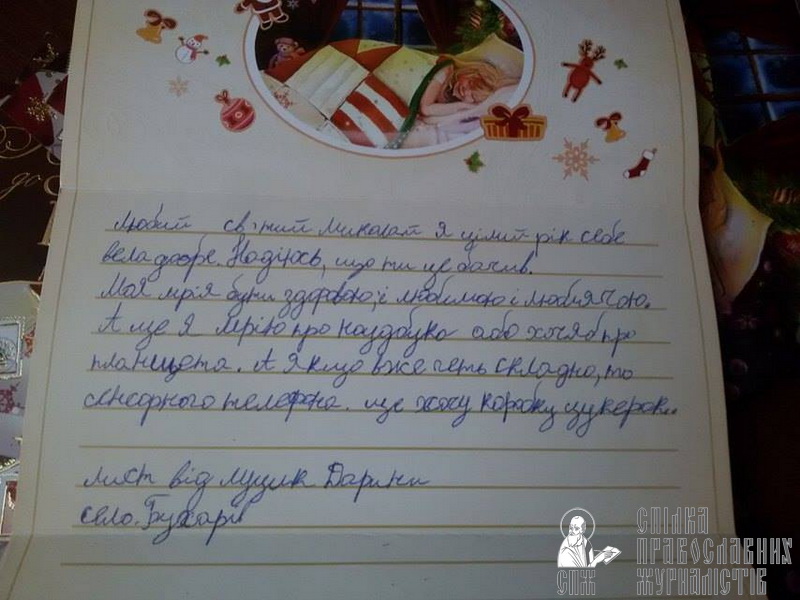 любий святий Миколай я цілий рік себе
вела добре. Надіюсь, що ти це бачив.
Моя мрія бути здоровою, і любимою і люблячою.
А ще я мрію про ноудбука або хочяб про
планшета. А якщо вже геть складно, то
сенсорного телефона. ще хочу коробку цукерок.
лист від Луцик Дарини
село. Бухарів
СПІЛКА
ПРАВОСЛАВНИХ
ЖУРНАЛІСТІВ
СПЖ